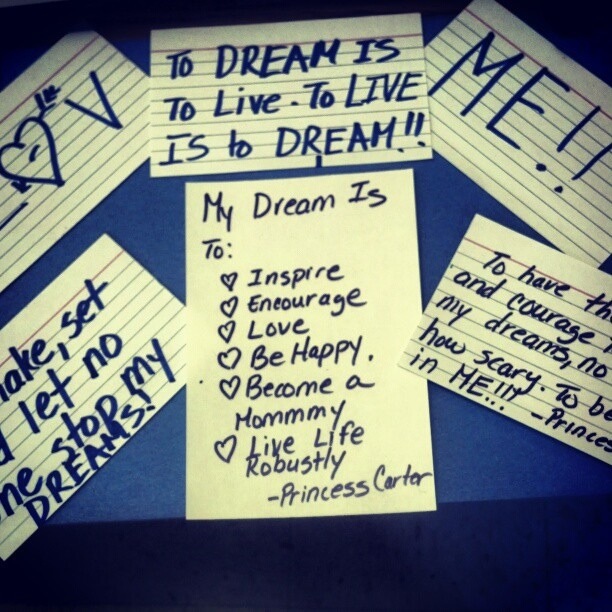 V
TO DREAM IS
To Live. To LIVE
IS to DREAM!!
ME!!
My Dream Is
To:
♡ Inspire
♡ Encourage
♡ Love
♡ Be Happy.
♡ Become a
Mommmy
♡ Live Life
Robustly
-Princess Carter
make, set
let no
stop my
DREAMS!
To have
and courage
my dreams, no
how scary. To
in ME!!!